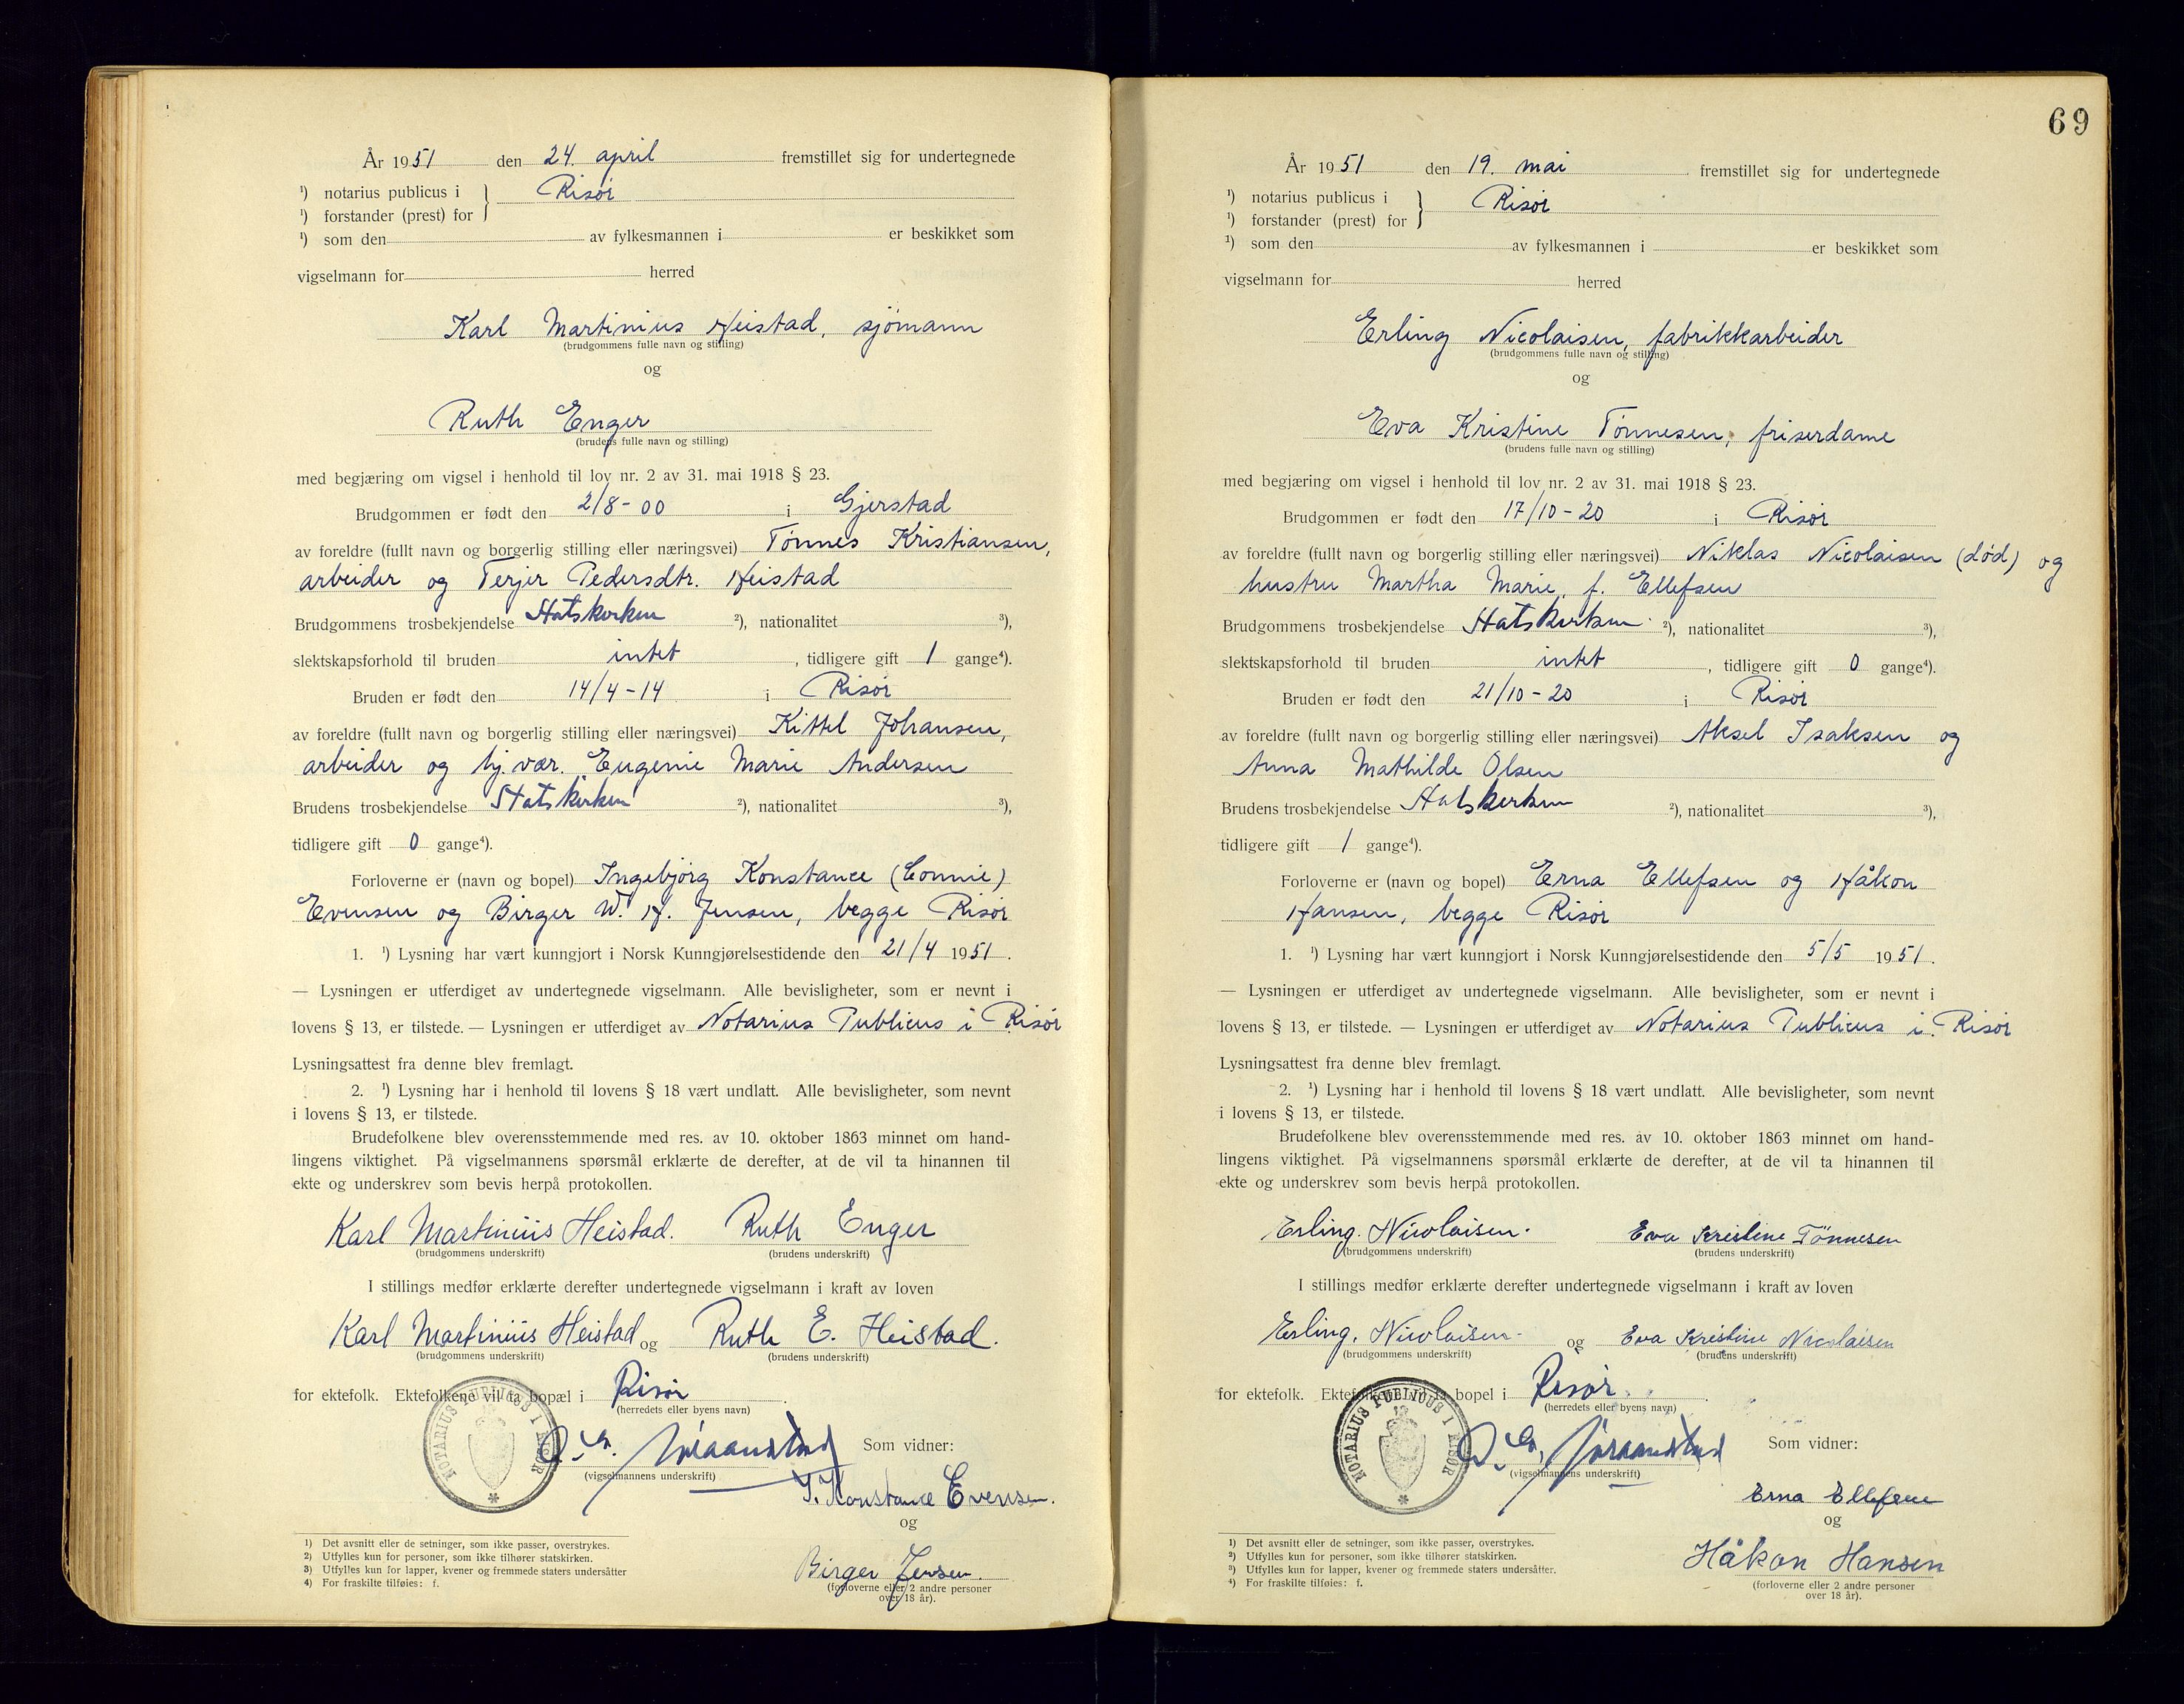 År 1951 den 24. april fremstillet sig for undertegnede
¹) notarius publicus i } Risør
¹) forstander (prest) for
¹) som den av fylkesmannen i er beskikket som
vigselmann for herred
Karl Martinius Heistad, sjømann
(brudgommens fulle navn og stilling)
og
Ruth Enger
(brudens fulle navn og stilling)
med begjæring om vigsel i henhold til lov nr. 2 av 31. mai 1918 § 23.
Brudgommen er født den 2/8-00 i Gjerstad
av foreldre (fullt navn og borgerlig stilling eller næringsvei) Tønnes Kristiansen,
arbeider og Terjer Pedersdtr. Heistad
Brudgommens trosbekjendelse Statskirken ²), nationalitet ³),
slektskapsforhold til bruden intet, tidligere gift 1 gange⁴).
Bruden er født den 14/4-14 i Risør
av foreldre (fullt navn og borgerlig stilling eller næringsvei) Kittel Johansen,
arbeider og hj.vær. Eugenie Marie Andersen
Brudens trosbekjendelse Statskirken ²), nationalitet ³),
tidligere gift 0 gange⁴).
Forloverne er (navn og bopel) Ingebjørg Konstance (Connie)
Evensen og Birger W. H. Jensen, begge Risør
1. ¹) Lysning har vært kunngjort i Norsk Kunngjørelsestidende den 21/4 1951.
— Lysningen er utferdiget av undertegnede vigselmann. Alle bevisligheter, som er nevnt i
lovens § 13, er tilstede. — Lysningen er utferdiget av Notarius Publicus i Risør
Lysningsattest fra denne blev fremlagt.
2. ¹) Lysning har i henhold til lovens § 18 vært undlatt. Alle bevisligheter, som nevnt
i lovens § 13, er tilstede.
Brudefolkene blev overensstemmende med res. av 10. oktober 1863 minnet om hand-
lingens viktighet. På vigselmannens spørsmål erklærte de derefter, at de vil ta hinannen til
ekte og underskrev som bevis herpå protokollen.
Karl Martinius Heistad. Ruth Enger
(brudgommens underskrift) (brudens underskrift)
I stillings medfør erklærte derefter undertegnede vigselmann i kraft av loven
Karl Martinius Heistad og Ruth E. Heistad.
(brudgommens underskrift) (brudens underskrift)
for ektefolk. Ektefolkene vil ta bopæl i Risør.
(herredets eller byens navn)
NOTARIUS PUBLICUS I RISØR
Som vidner:
(vigselmannens underskrift)
I. Konstance Evensen.
og
Birger Jensen.
(forloverne eller 2 andre personer
over 18 år).
1) Det avsnitt eller de setninger, som ikke passer, overstrykes.
2) Utfylles kun for personer, som ikke tilhører statskirken.
3) Utfylles kun for lapper, kvener og fremmede staters undersåtter
4) For fraskilte tilføies: f.
69
År 1951 den 19. mai fremstillet sig for undertegnede
¹) notarius publicus i } Risør
¹) forstander (prest) for
¹) som den av fylkesmannen i er beskikket som
vigselmann for herred
Erling Nicolaisen, fabrikkarbeider
(brudgommens fulle navn og stilling)
og
Eva Kristine Tønnesen, friserdame
(brudens fulle navn og stilling)
med begjæring om vigsel i henhold til lov nr. 2 av 31. mai 1918 § 23.
Brudgommen er født den 17/10-20 i Risør
av foreldre (fullt navn og borgerlig stilling eller næringsvei) Niklas Nicolaisen (død) og
hustru Martha Marie, f. Ellefsen
Brudgommens trosbekjendelse Statskirken ²), nationalitet ³),
slektskapsforhold til bruden intet, tidligere gift 0 gange⁴).
Bruden er født den 21/10-20 i Risør
av foreldre (fullt navn og borgerlig stilling eller næringsvei) Aksel Isaksen og
Anna Mathilde Olsen
Brudens trosbekjendelse Statskirken ²), nationalitet ³),
tidligere gift 1 gange⁴).
Forloverne er (navn og bopel) Erna Ellefsen og Håkon
Hansen, begge Risør
1. ¹) Lysning har vært kunngjort i Norsk Kunngjørelsestidende den 5/5 1951.
— Lysningen er utferdiget av undertegnede vigselmann. Alle bevisligheter, som er nevnt i
lovens § 13, er tilstede. — Lysningen er utferdiget av Notarius Publicus i Risør
Lysningsattest fra denne blev fremlagt.
2. ¹) Lysning har i henhold til lovens § 18 vært undlatt. Alle bevisligheter, som nevnt
i lovens § 13, er tilstede.
Brudefolkene blev overensstemmende med res. av 10. oktober 1863 minnet om hand-
lingens viktighet. På vigselmannens spørsmål erklærte de derefter, at de vil ta hinannen til
ekte og underskrev som bevis herpå protokollen.
Erling. Nicolaisen. Eva Kristine Tönnesen
(brudgommens underskrift) (brudens underskrift)
I stillings medfør erklærte derefter undertegnede vigselmann i kraft av loven
Erling. Nicolaisen. og Eva Kristine Nicolaisen
(brudgommens underskrift) (brudens underskrift)
for ektefolk. Ektefolkene vil ta bopel i Risør.
(herredets eller byens navn)
NOTARIUS PUBLICUS I RISØR
Som vidner:
(vigselmannens underskrift)
Erna Ellefsen
og
Håkon Hansen
(forloverne eller 2 andre personer
over 18 år).
1) Det avsnitt eller de setninger, som ikke passer, overstrykes.
2) Utfylles kun for personer, som ikke tilhører statskirken.
3) Utfylles kun for lapper, kvener og fremmede staters undersåtter.
4) For fraskilte tilføies: f.